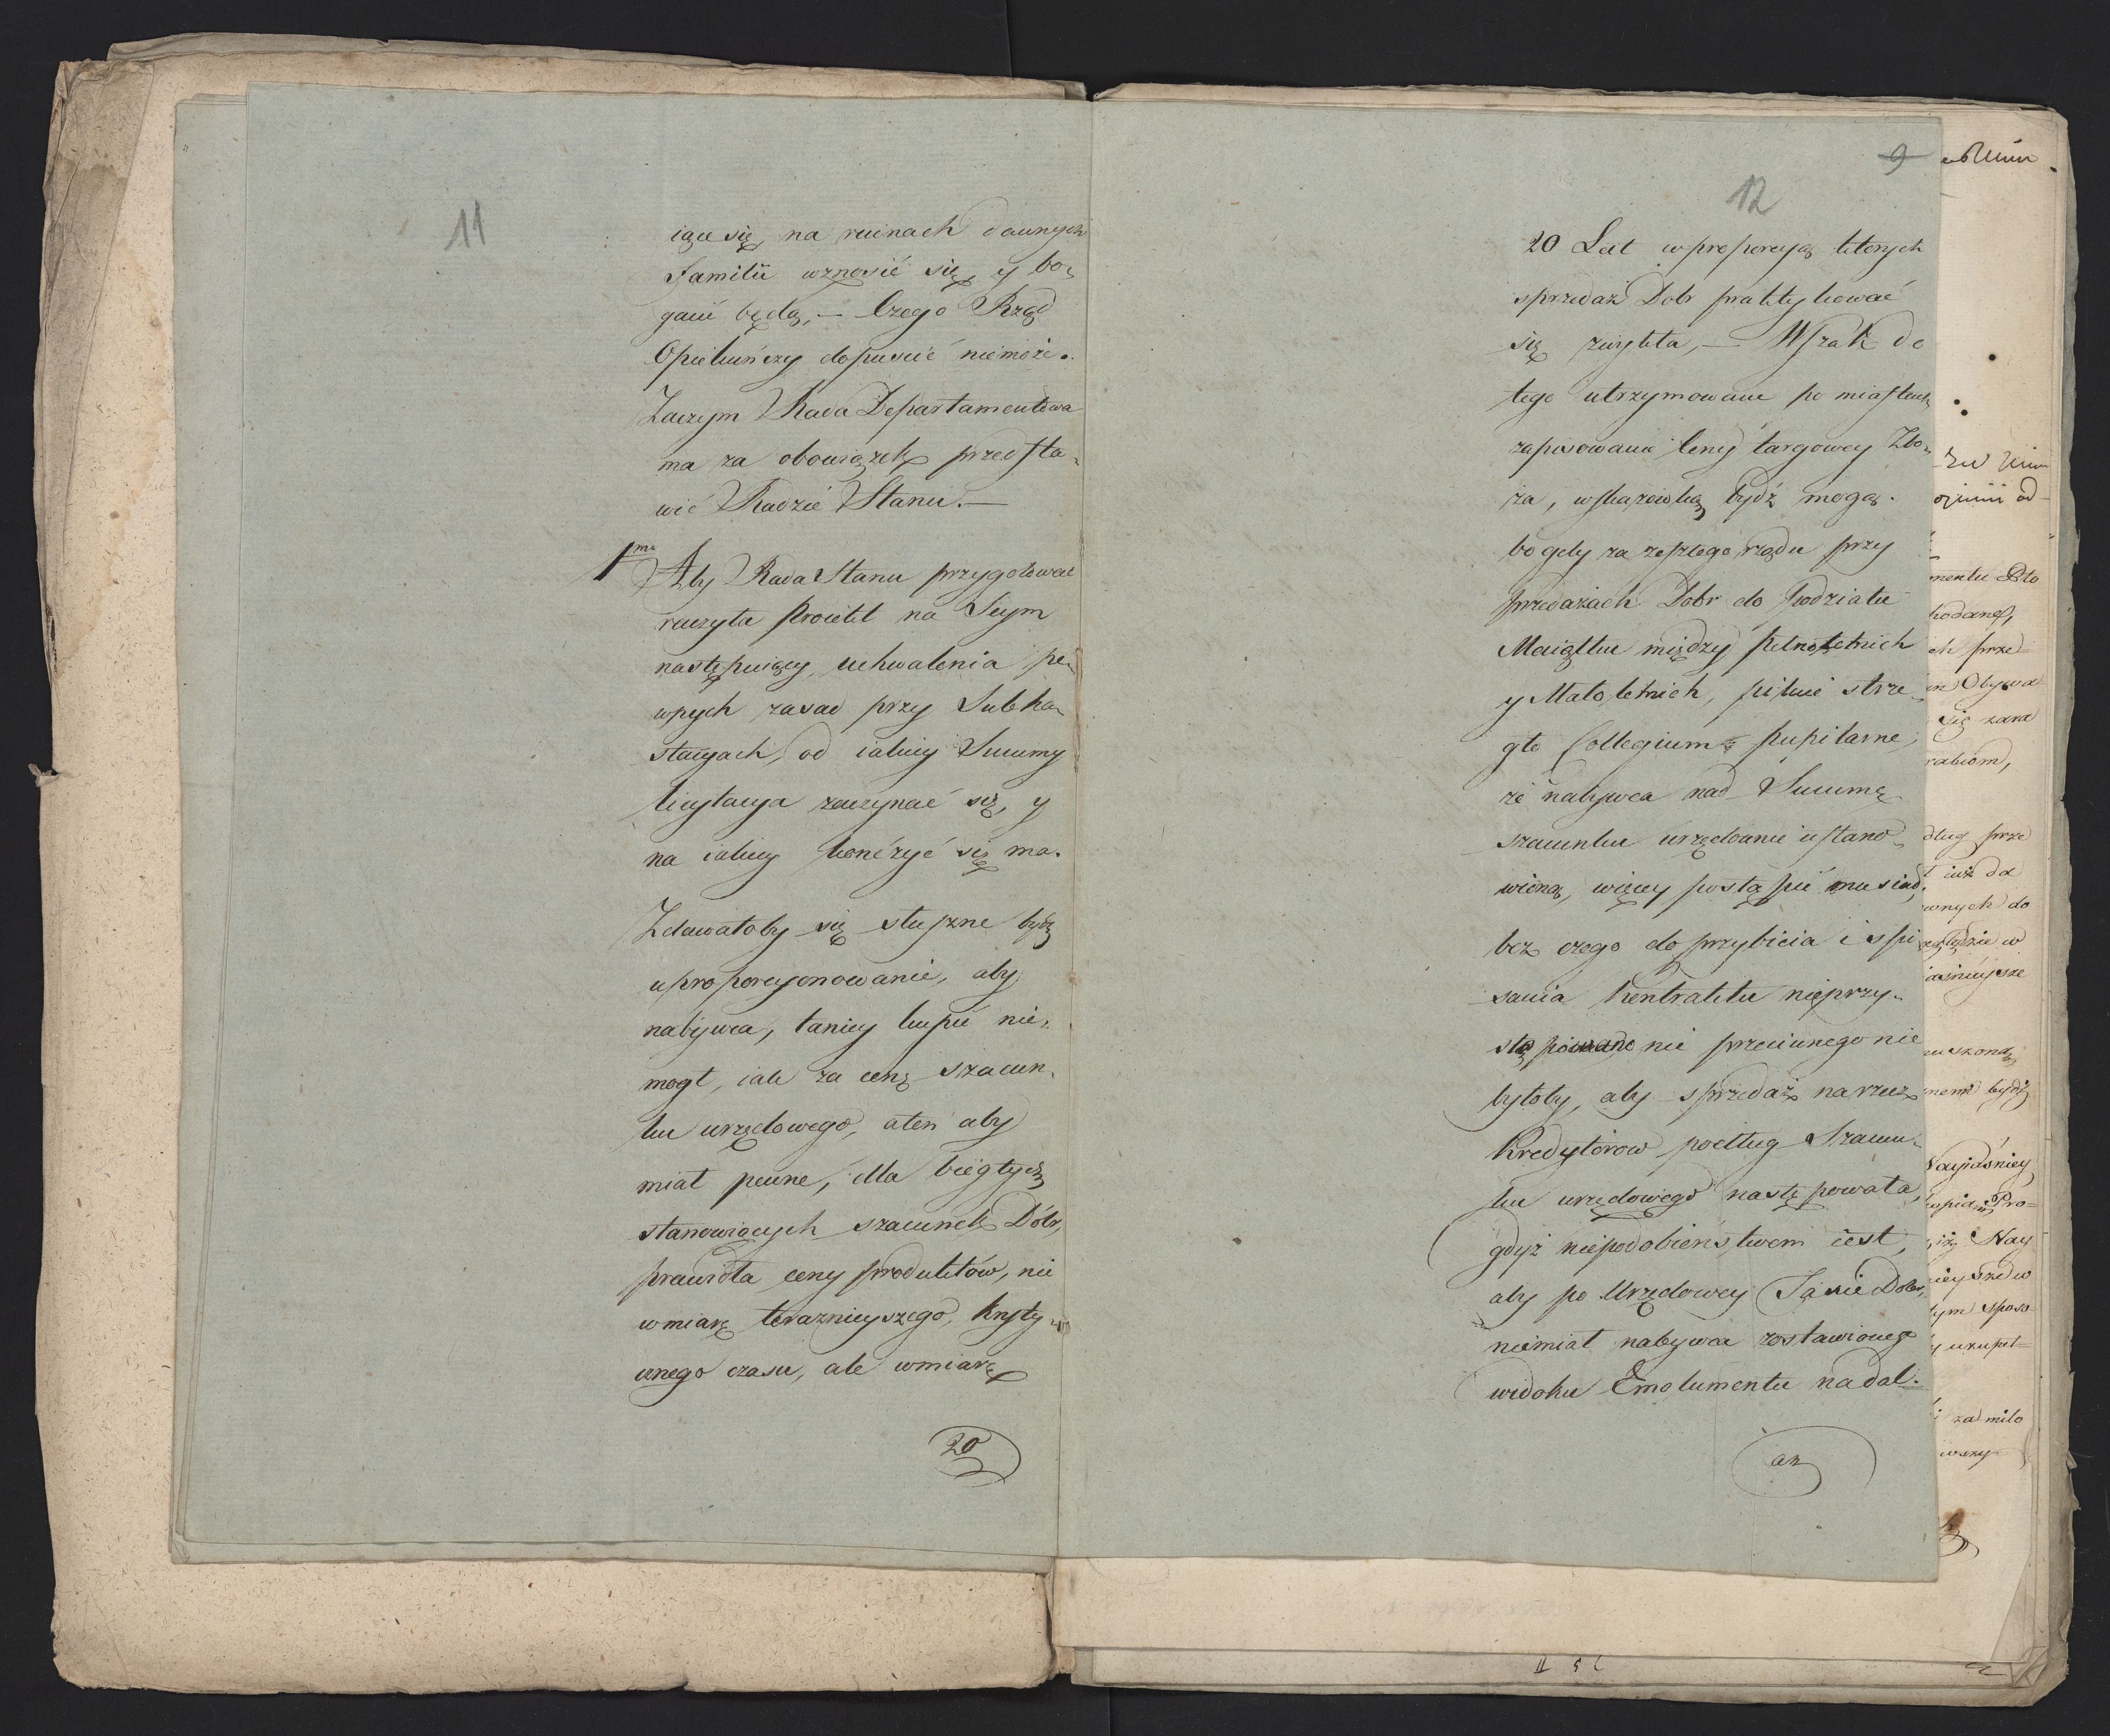 11
iące się na ruinach dawnych
Familii wznosić się, y bo¬
gacić będą, — Czego Rząd
Opiekuńczy dopuścić niemoże.
Zaczym Rada Departamentowa
ma za obowiązek przedsta¬
wić Radzie Stanu. —
1mo Aby Rada Stanu przygotować
raczyła Proiekt na Seym
następuiący, uchwalenia pe¬
wnych zasad przy Subha¬
stacyach, od iakiey Summy
licytacya zaczynać się, y
na iakiey kończyć się ma.
Zdawałoby się słuszne bydź
uproporcyonowanie, aby
nabywca, taniey kupić nie¬
mogł, iak za cenę szacun¬
ku urzędowego, a ten aby
miał pewne, dla biegłych
stanowiących szacunek Dóbr,
prawidła ceny produktów, nie
wmiarę teraznieyszego, kryty¬
cznego czasu, ale wmiarę
20
9
12
20 Lat w proporcyą których
sprzedaż Dobr praktykować
się zwykła, — Wszak do
tego utrzymowane po miastach
zapisowania Ceny targowey Zbo¬
ża, wskazowką bydź mogą.
bo gdy za zeszłego rządu przy
przedażach Dobr do Podziału
Maiątku między pełnoletnich
y Małoletnich, pilnie strze¬
gło Collegium pupilarne,
że nabywca nad Summę
szacunku urzędownie ustano¬
wioną, więcey postąpić musiał,
bez czego do przybicia i spi
sania kontraktu nieprzy¬
stępowano nie przeciwnego nie
byłoby, aby sprzedaż na rzecz
Kredytorow podług Szacun¬
ku urzędowego następowała,
gdyż niepodobieństwem iest,
aby po Urzędowey Taxie Dobr,
niemiał nabywca zostawionego
widoku Emolumentu nadal.
az